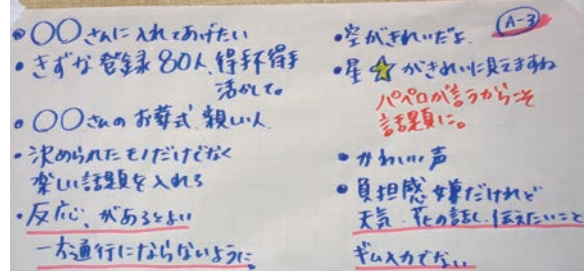 ・〇〇さんに入れてあげたい
・きずな登録80人、得手不得手
活かして。
・〇〇さんのお葬式、親しい人
・決められたモノだけでなく
楽しい話題を入れる
・反応、があるとよい
一方通行にならないように
A-3
・空がきれいだよ
・星☆がきれいに見えますね
パペロが言うからこそ
話題に。
・かわいい声
・負担感 嫌だけれど
天気、花の話し、伝えたいこと
ギム入力でない